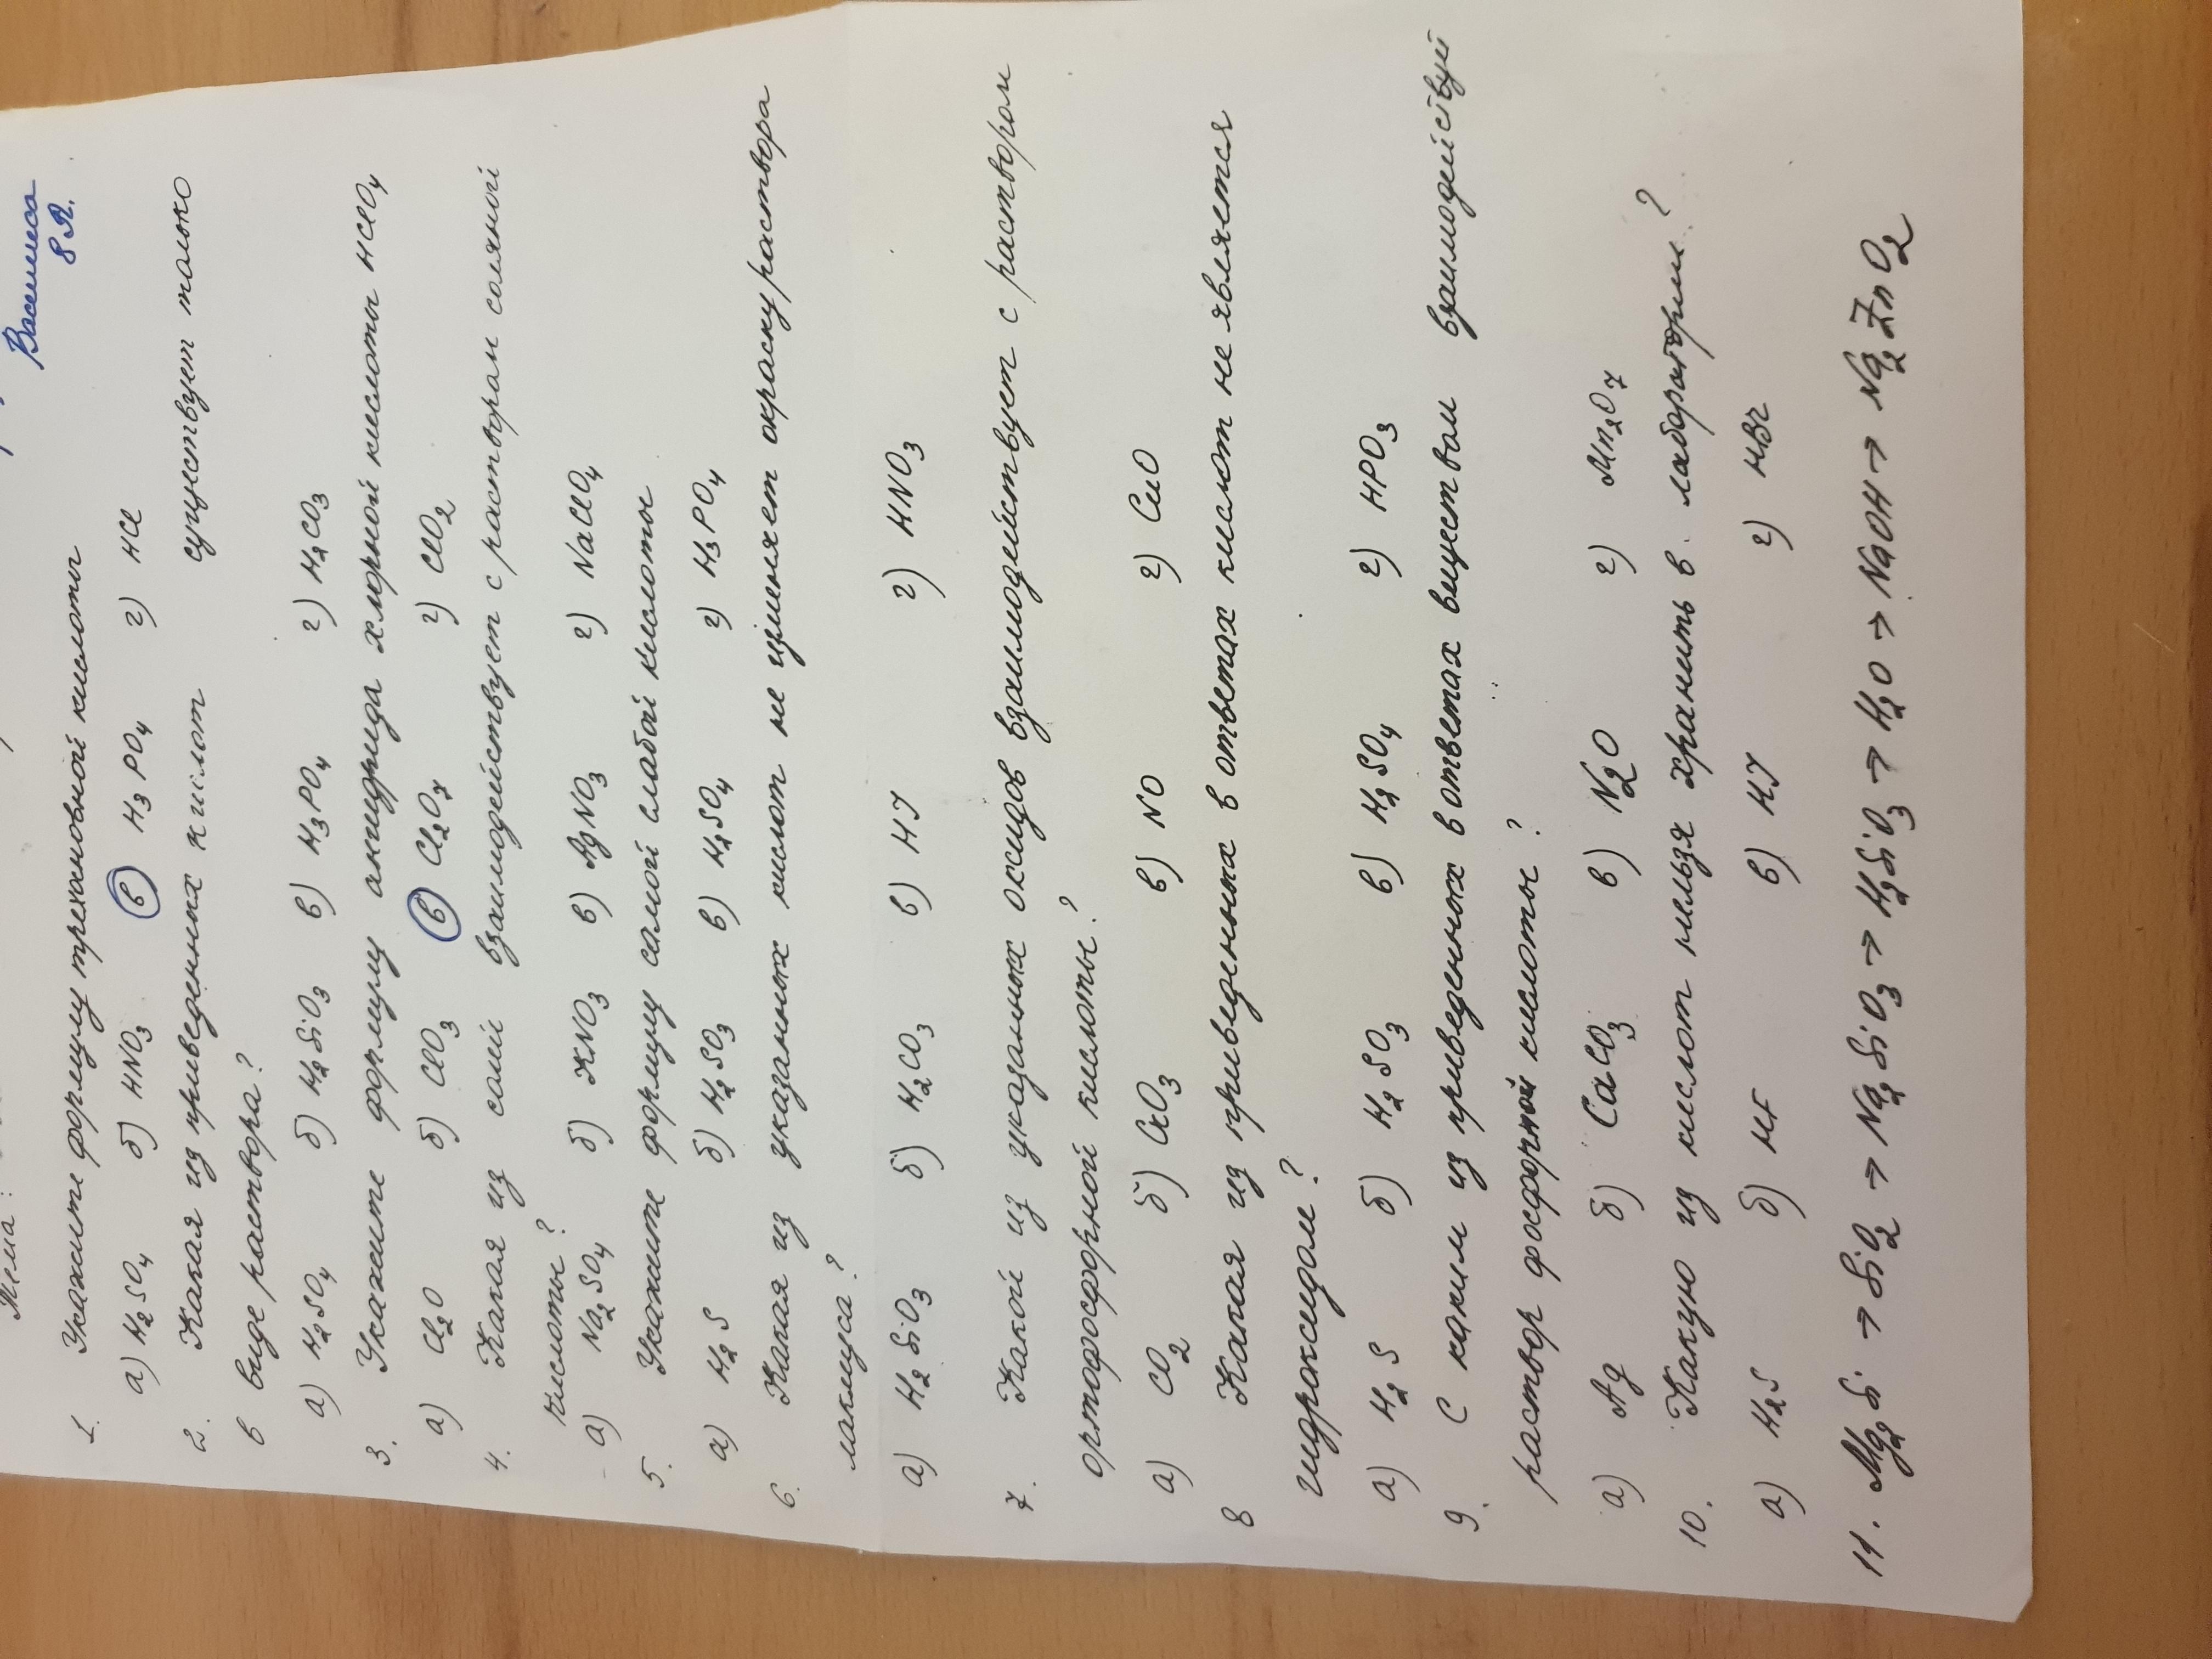 Тема:
Василиса
8 Я.
1. Укажите формулу трехосновной кислоты
а) H₂SO₄ б) HNO₃ в) H₃PO₄ г) HCl
2. Какая из приведенных кислот существует только
в виде раствора?
а) H₂SO₄ б) H₂SiO₃ в) H₃PO₄ г) H₂CO₃
3. Укажите формулу ангидрида хлорной кислоты HClO₄
а) Cl₂O б) ClO₃ в) Cl₂O₇ г) ClO₂
4. Какая из солей взаимодействует с раствором соляной
кислоты?
а) Na₂SO₄ б) KNO₃ в) AgNO₃ г) NaClO₄
5. Укажите формулу самой слабой кислоты
а) H₂S б) H₂SO₃ в) H₂SO₄ г) H₃PO₄
6. Какая из указанных кислот не изменяет окраску раствора
лакмуса?
а) H₂SiO₃ б) H₂CO₃ в) HJ г) HNO₃
7. Какой из указанных оксидов взаимодействует с раствором
ортофосфорной кислоты?
а) CO₂ б) CrO₃ в) NO г) CuO
8 Какая из приведенных в ответах кислот не является
гидроксидом?
а) H₂S б) H₂SO₃ в) H₂SO₄ г) HPO₃
9. С каким из приведенных в ответах веществом взаимодействуй
раствор фосфорной кислоты?
а) Ag б) CaCO₃ в) N₂O г) Mn₂O₇
10. Какую из кислот нельзя хранить в лаборатории?
а) H₂S б) HF в) HJ г) HBr
11. Mg₂Si → SiO₂ → Na₂SiO₃ → H₂SiO₃ → H₂O → NaOH → Na₂ZnO₂